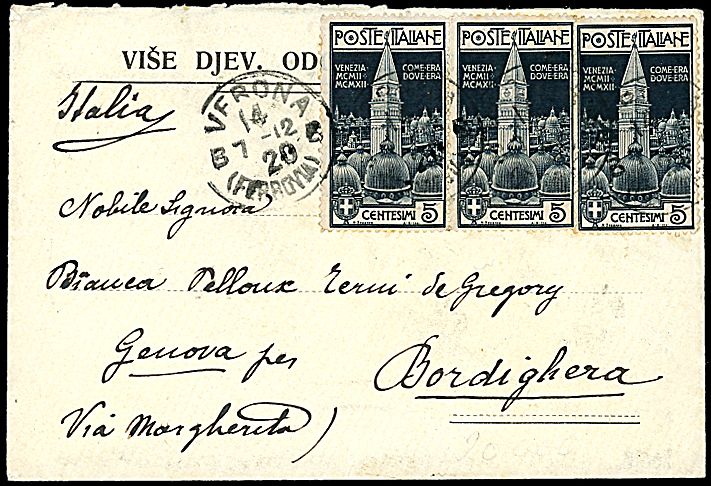 VIŠE DJEV. OD
POSTE ITALIANE
VENEZIA MCMII MCMXII COM'ERA DOV'ERA
CENTESIMI 5
POSTE ITALIANE
VENEZIA MCMII MCMXII COM'ERA DOV'ERA
CENTESIMI 5
POSTE ITALIANE
VENEZIA MCMII MCMXII COM'ERA DOV'ERA
CENTESIMI 5
VERONA
14
7-12
20
(FERROVIA)
Italia
Nobile Signora
Bianca Pelloux Terni de Gregory
Genova per Bordighera
Via Margherita)